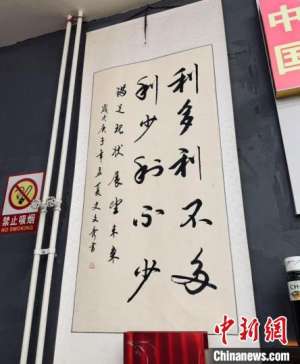 利多利不多
利少利不少
满足现状展望未来
岁次庚子年孟夏史文彦书
禁止吸烟
NO SMOKING
中
国
CHA
中新网
Chinanews.com